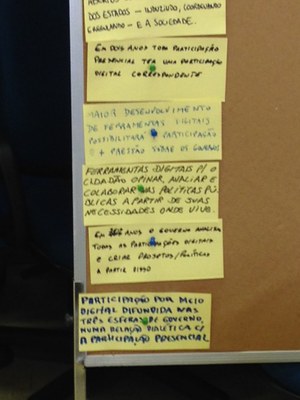 DOS ESTADOS - INDUZINDO, COORDENANDO
- E A SOCIEDADE.
EM DOIS ANOS TODA PARTICIPAÇÃO
PRESENCIAL TER UMA PARTICIPAÇÃO
DIGITAL CORRESPONDENTE
MAIOR DESENVOLVIMENTO
DE FERRAMENTAS DIGITAIS E
POSSIBILITARÁ + PARTICIPAÇÃO
E + PRESSÃO SOBRE OS GOVERNOS
FERRAMENTAS DIGITAIS P/ O
CIDADÃO OPINAR, AVALIAR E
COLABORAR NAS POLÍTICAS PÚ-
BLICAS A PARTIR DE SUAS
NECESSIDADES ONDE VIVE.
EM ANOS O GOVERNO ANALISA
TODAS AS PARTICIPAÇÕES DIGITAIS
E CRIAR PROJETOS/POLÍTICAS
A PARTIR DISSO
PARTICIPAÇÃO POR MEIO
DIGITAL DIFUNDIDA NAS
TRÊS ESFERAS DE GOVERNO,
NUMA RELAÇÃO DIALÉTICA C/
A PARTICIPAÇÃO PRESENCIAL